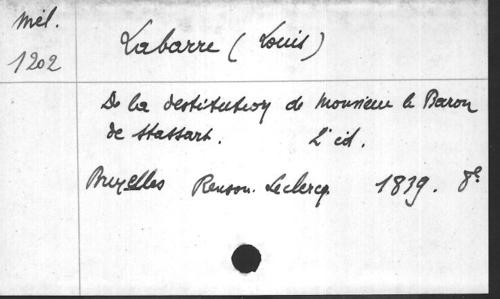 Mél.
1202
Labarre (Louis)
De la destitution de Monsieur le Baron
de Stassart. 2e éd.
Bruxelles Renson. Leclercq. 1839. 8°